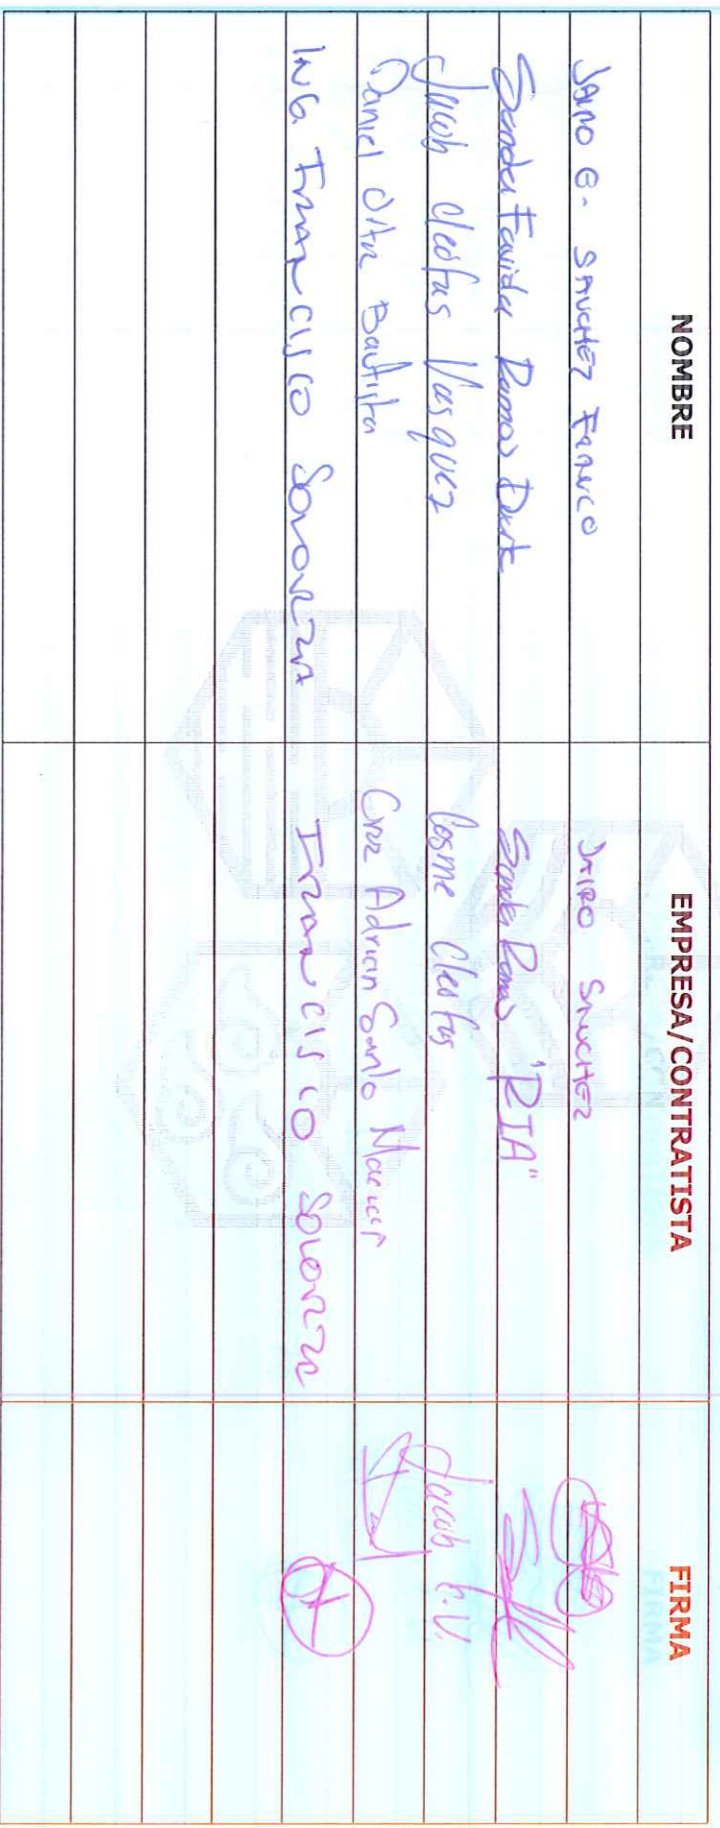 NOMBRE EMPRESA/CONTRATISTA FIRMA
JAIRO G. SANCHEZ FRANCO JAIRO SANCHEZ
Sandra Favida Ramos Duarte Sandra Ramos "RIA"
Jacob Cleofas Vasquez Cosme Cleofas Jacob C.V.
Daniel Ortiz Bautista Cruz Adrian Santo
ING FRANCISCO SOLORZA FRANCISCO SOLORZA